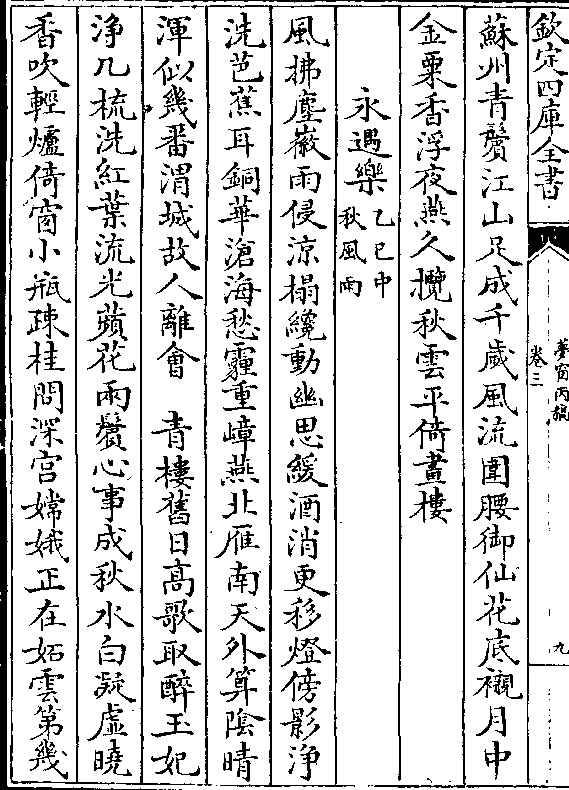 欽定四庫全書
夢窗丙稿
卷三
九
蘇州青鬢江山足成千歲風流圍腰御仙花底襯月中
金粟香浮夜燕久攬秋雲平倚畫樓
永遇樂乙巳中秋風雨
風拂塵徽雨侵涼榻纔動幽思緩酒消更移燈傍影淨
洗芭蕉耳銅華滄海愁霾重嶂燕北雁南天外算陰晴
渾似幾番渭城故人離會 青樓舊日高歌取醉玉妃
淨几梳洗紅葉流光蘋花兩鬢心事成秋水白凝虛曉
香吹輕爐倚窗小瓶疎桂問深宮嫦娥正在妬雲第幾